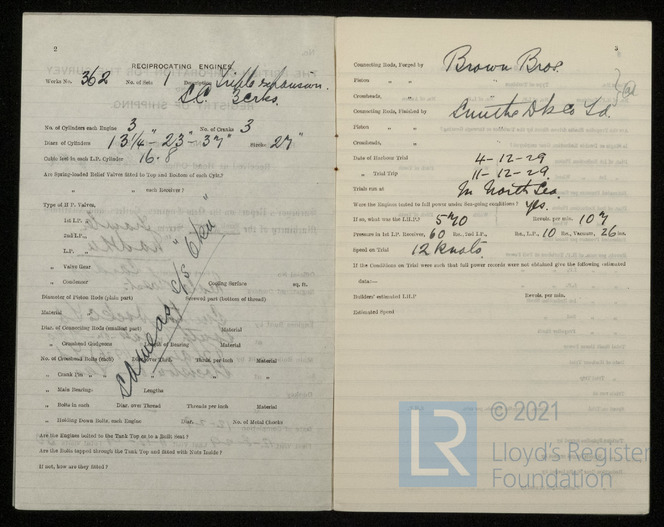 2
RECIPROCATING ENGINES.
Works No. 362 No. of Sets 1 Description Triple expansion.
S.C. 3 crks.
No. of Cylinders each Engine 3 No. of Cranks 3
Diars. of Cylinders 13¼" - 23" - 37" Stroke 27"
Cubic feet in each L.P. Cylinder 16.8
Are Spring-loaded Relief Valves fitted to Top and Bottom of each Cylr.?
„ „ each Receiver?
Type of H.P. Valves,
1st I.P. „
2nd I.P. „
L.P. „
„ Valve Gear
„ Condenser Cooling Surface sq. ft.
Diameter of Piston Rods (plain part) Screwed part (bottom of thread)
Material
Diar. of Connecting Rods (smallest part) Material
„ Crosshead Gudgeons Length of Bearing Material
No. of Crosshead Bolts (each) Diar. over Thrd. Thrds. per inch Material
„ Crank Pin „ „ „ „
„ Main Bearings Lengths
„ Bolts in each Diar. over Thread Threads per inch Material
„ Holding Down Bolts, each Engine Diar. No. of Metal Chocks
Are the Engines bolted to the Tank Top or to a Built Seat?
Are the Bolts tapped through the Tank Top and fitted with Nuts Inside?
If not, how are they fitted?
Same as S/S "Oku"
3
Connecting Rods, Forged by Brown Bros.
Piston „ „
Crossheads, „
Connecting Rods, Finished by Smiths Dk Co Ld.
Piston „ „
Crossheads, „
Date of Harbour Trial 4-12-29
„ Trial Trip 11-12-29.
Trials run at In North Sea
Were the Engines tested to full power under Sea-going conditions? yes.
If so, what was the I.H.P.? 570 Revols. per min. 107
Pressure in 1st I.P. Receiver, 60 lbs., 2nd I.P., lbs., L.P., 10 lbs., Vacuum, 26 ins.
Speed on Trial 12 knots.
If the Conditions on Trial were such that full power records were not obtained give the following estimated
data:—
Builders' estimated I.H.P. Revols. per min.
Estimated Speed
LR © 2021
Lloyd's Register
Foundation